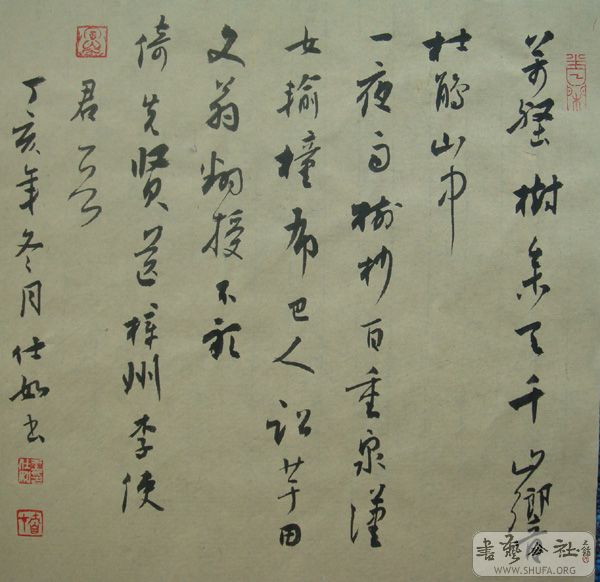 萬壑樹參天千山響
杜鵑山中
一夜雨樹杪百重泉漢
女輸橦布巴人訟芋田
文翁翻授不敢
倚先賢送梓州李使
君
丁亥年冬月仕如書
書藝公社
WWW.SHUFA.ORG